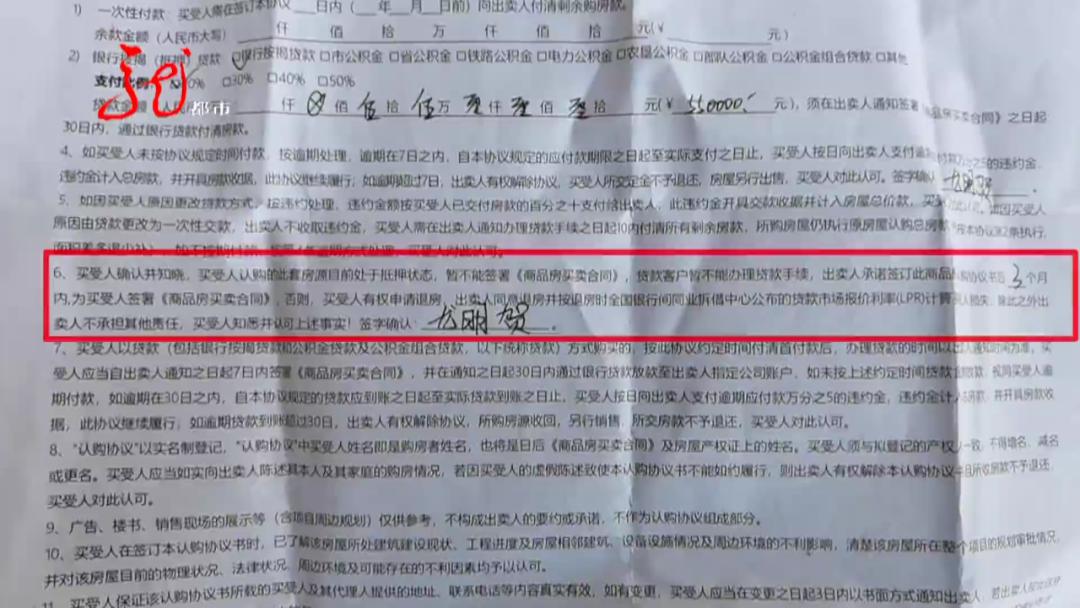 1) 一次性付款：买受人需在签订本协议___日内(___年___月___日前)向出卖人付清剩余购房款。
余款金额（人民币大写）仟 佰 拾 万 仟 佰 拾 元(￥ 元)
2) 银行按揭（抵押）贷款 ☑银行按揭贷款 □市公积金 □省公积金 □铁路公积金 □电力公积金 □农垦公积金 □部队公积金 □公积金组合贷款 □其他
支付比例： 0% □30% □40% □50%
都市
贷款金额（人民 仟 ⊗ 佰 伍 拾 伍 万 零 仟 零 佰 零 拾 元(￥ 550000. 元)，须在出卖人通知签署 商品房买卖合同》之日起
30日内，通过银行贷款付清房款。
4、如买受人未按协议规定时间付款，按逾期处理，逾期在7日之内，自本协议规定的应付款期限之日起至实际支付之日止，买受人按日向出卖人支付逾 万分之5的违约金，
违约金计入总房款，并开具房款收据，此协议继续履行；如逾期超过7日，出卖人有权解除协议，买受人所交定金不予退还，房屋另行出售，买受人对此认可。签字确认
5、如因买受人原因更改贷款方式，按违约处理，违约金额按买受人已交付房款的百分之十支付给出卖人，此违约金开具交款收据并计入房屋总价款， 如因买受人
原因由贷款更改为一次性交款，出卖人不收取违约金，买受人需在出卖人通知办理贷款手续之日起10内付清所有剩余房款，所购房屋仍执行原房屋认购总房款 按本协议第2条执行，
面积差多退少补），如不按期付款，按第4条逾期方式处理，买受人对此认可。
6、买受人确认并知晓，买受人认购的此套房源目前处于抵押状态，暂不能签署《商品房买卖合同》，贷款客户暂不能办理贷款手续，出卖人承诺签订此商品 认购协议书后 3 个月
内，为买受人签署《商品房买卖合同》，否则，买受人有权申请退房，出卖人同意退房并按退房时全国银行间同业拆借中心公布的贷款市场报价利率(LPR)计算 损失，除此之外出
卖人不承担其他责任，买受人知悉并认可上述事实！签字确认： 贺 。
7、买受人以贷款（包括银行按揭贷款和公积金贷款及公积金组合贷款，以下统称贷款）方式购买的，按此协议约定时间付清首付款后，办理贷款的时间以出卖人通知时间为准，买
受人应当自出卖人通知之日起7日内签署《商品房买卖合同》，并在通知之日起30日内通过银行贷款放款至出卖人指定公司账户，如未按上述约定时间贷款 放款，视同买受人逾
期付款，如逾期在30日之内，自本协议规定的贷款应到账之日起至实际贷款到账之日止，买受人按日向出卖人支付逾期应付款万分之5的违约金，违约金计入 房款，并开具房款收
据，此协议继续履行，如逾期贷款到账超过30日，出卖人有权解除协议，所购房源收回，另行销售，所交房款不予退还，买受人对此认可。
8、“认购协议”以实名制登记，“认购协议”中买受人姓名即是购房者姓名，也将是日后《商品房买卖合同》及房屋产权证上的姓名。买受人须与拟登记的产权 一致，不得增名、减名
或更名。买受人应当如实向出卖人陈述其本人及其家庭的购房情况，若因买受人的虚假陈述致使本认购协议书不能如约履行，则出卖人有权解除本认购协议 且所收房款不予退还，
买受人对此认可。
9、广告、楼书、销售现场的展示等（含项目周边规划）仅供参考，不构成出卖人的要约或承诺，不作为认购协议组成部分。
10、买受人在签订本认购协议书时，已了解该房屋所处建筑建设现状、工程进度及房屋相邻建筑、设备设施情况及周边环境的不利影响，清楚该房屋所在整个项目的规划审批情况，
并对该房屋目前的物理状况、法律状况、周边环境及可能存在的不利因素均予以认可。
11、买受人保证该认购协议书所载的买受人及其代理人提供的地址、联系电话等内容真实有效，如有变更，买受人应当在变更之日起3日内以书面方式通知出卖人，